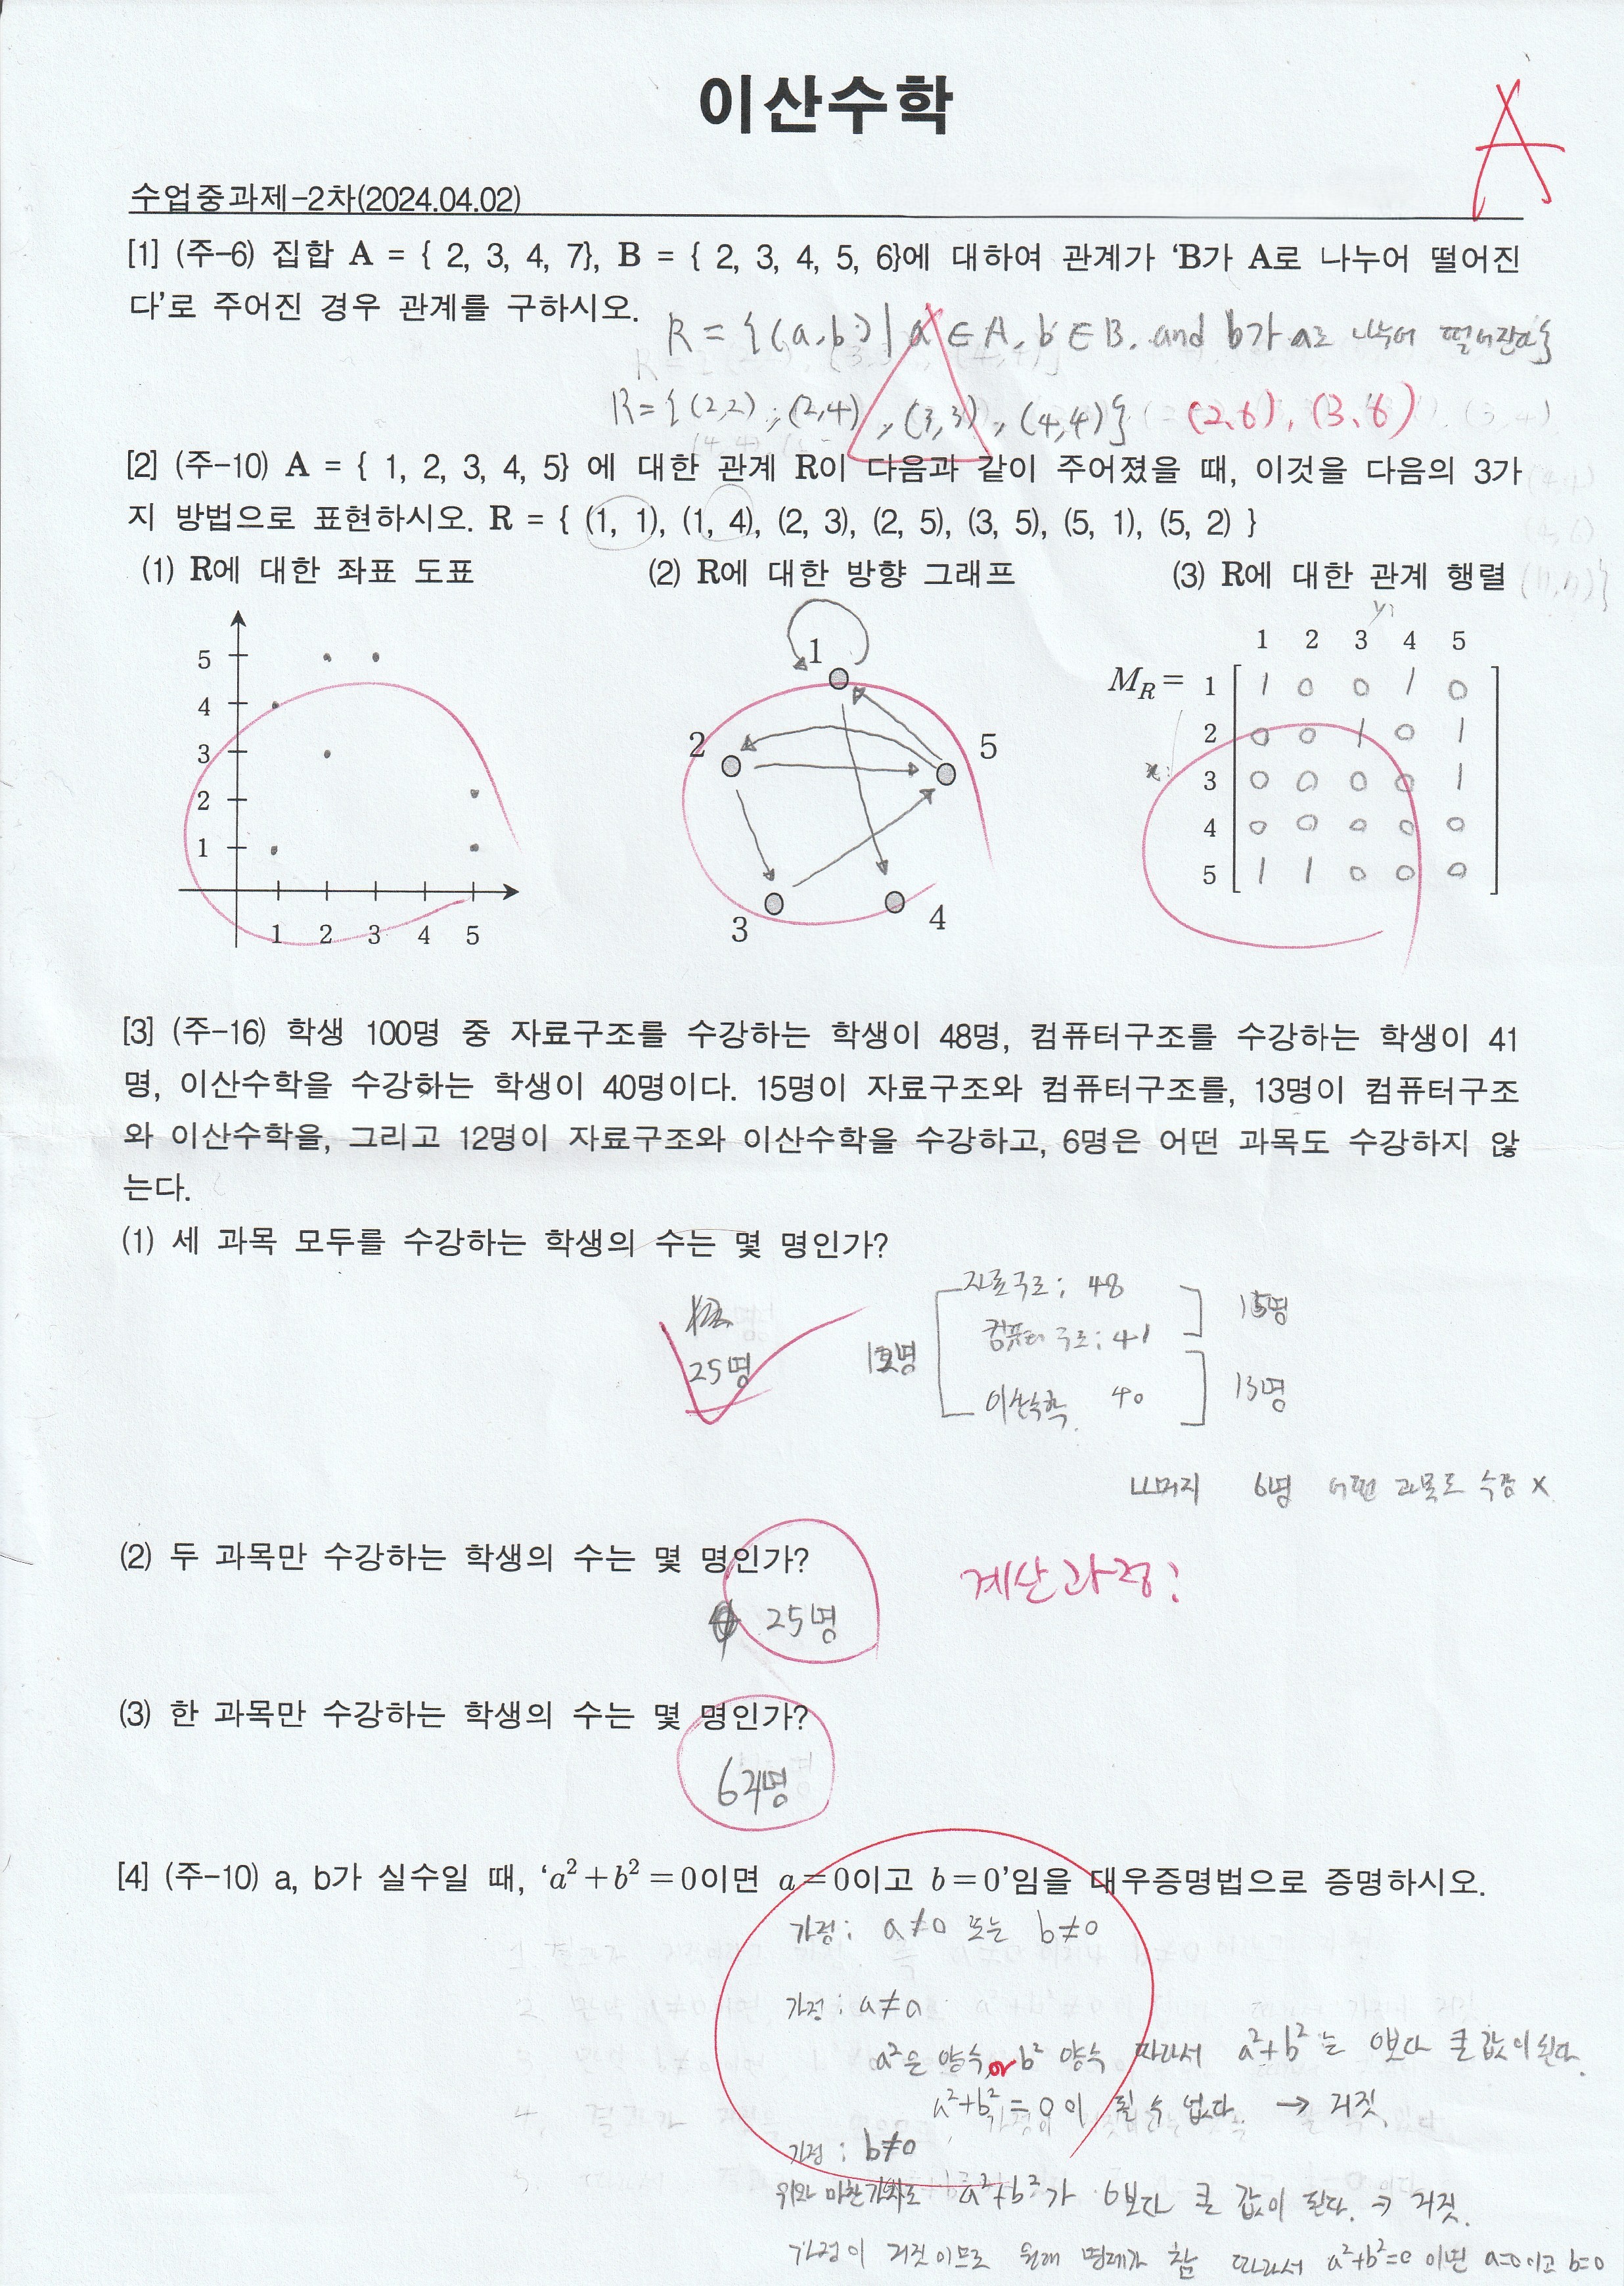 이산수학
A
수업중과제-2차(2024.04.02)
[1] (주-6) 집합 A = { 2, 3, 4, 7}, B = { 2, 3, 4, 5, 6}에 대하여 관계가 ‘B가 A로 나누어 떨어진
다’로 주어진 경우 관계를 구하시오.
R = {(a,b) | a ∈ A, b ∈ B, and b가 a로 나누어 떨어진다}
R = {(2,2), (2,4), (3,3), (4,4)} (2,6), (3,6)
[2] (주-10) A = { 1, 2, 3, 4, 5} 에 대한 관계 R이 다음과 같이 주어졌을 때, 이것을 다음의 3가
지 방법으로 표현하시오. R = { (1, 1), (1, 4), (2, 3), (2, 5), (3, 5), (5, 1), (5, 2) }
(1) R에 대한 좌표 도표 (2) R에 대한 방향 그래프 (3) R에 대한 관계 행렬
5
4
3
2
1
1 2 3 4 5
1
2 5
3 4
y:
1 2 3 4 5
M_R = 1 1 0 0 1 0
2 0 0 1 0 1
x: 3 0 0 0 0 1
4 0 0 0 0 0
5 1 1 0 0 0
[3] (주-16) 학생 100명 중 자료구조를 수강하는 학생이 48명, 컴퓨터구조를 수강하는 학생이 41
명, 이산수학을 수강하는 학생이 40명이다. 15명이 자료구조와 컴퓨터구조를, 13명이 컴퓨터구조
와 이산수학을, 그리고 12명이 자료구조와 이산수학을 수강하고, 6명은 어떤 과목도 수강하지 않
는다.
(1) 세 과목 모두를 수강하는 학생의 수는 몇 명인가?
자료구조: 48 15명
25명 12명 컴퓨터 구조: 41
이산수학 40 13명
나머지 6명 어떤 과목도 수강 x
(2) 두 과목만 수강하는 학생의 수는 몇 명인가?
25명 계산과정:
(3) 한 과목만 수강하는 학생의 수는 몇 명인가?
64명
[4] (주-10) a, b가 실수일 때, ‘a²+b²=0이면 a=0이고 b=0’임을 대우증명법으로 증명하시오.
가정: a≠0 또는 b≠0
가정: a≠a
a²은 양수 or b² 양수 따라서 a²+b²는 0보다 큰 값이 된다.
a²+b²=0이 될 수 없다. → 거짓.
가정: b≠0
위와 마찬가지로 a²+b²가 0보다 큰 값이 된다. → 거짓.
가정이 거짓이므로 원래 명제가 참 따라서 a²+b²=0 이면 a=0이고 b=0